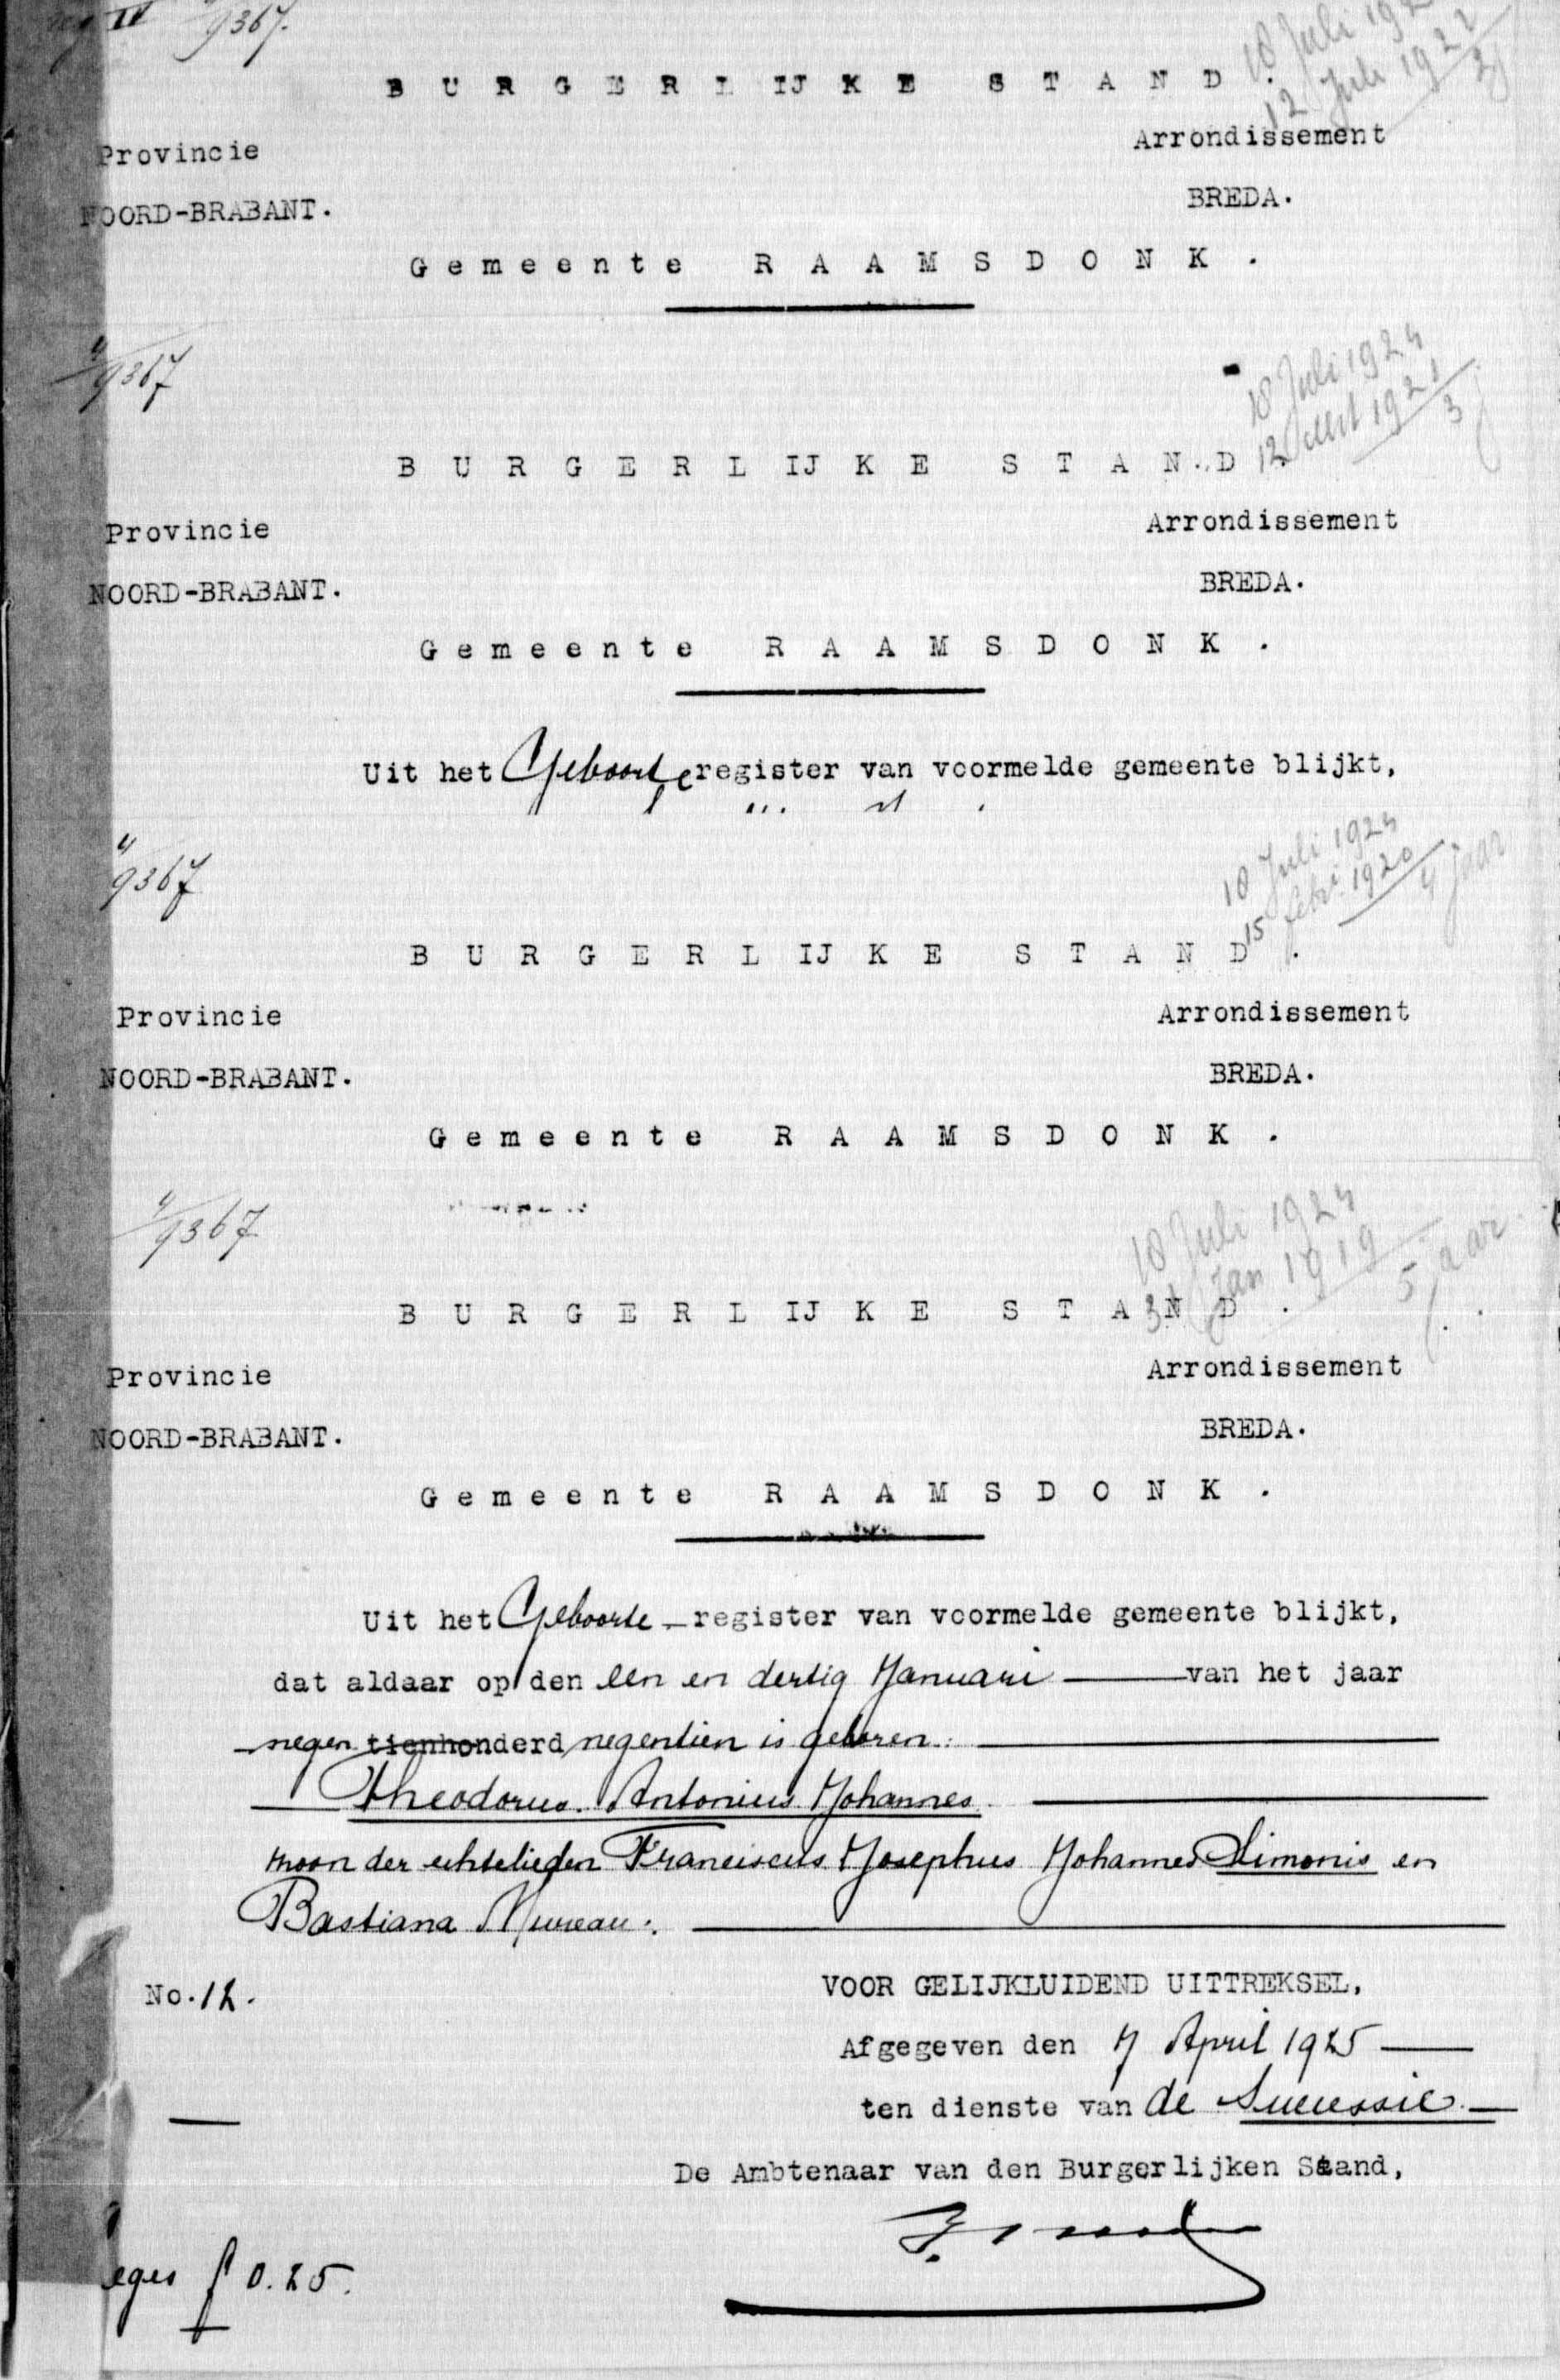 9367.
18 Juli 192
12 Juli 1922
2
BURGERLIJKE STAND.
Provincie Arrondissement
NOORD-BRABANT. BREDA.
Gemeente RAAMSDONK.
9367
18 Juli 1924
12 1921
3 j
BURGERLIJKE STAND
Provincie Arrondissement
NOORD-BRABANT. BREDA.
Gemeente RAAMSDONK.
Uit het Geboorte register van voormelde gemeente blijkt,
9367
18 Juli 1924
15 febr. 1920
4 jaar
BURGERLIJKE STAND.
Provincie Arrondissement
NOORD-BRABANT. BREDA.
Gemeente RAAMSDONK.
9367
18 Juli 1924
31 Jan 1919
5 jaar
BURGERLIJKE STAND.
Provincie Arrondissement
NOORD-BRABANT. BREDA.
Gemeente RAAMSDONK.
Uit het Geboorte - register van voormelde gemeente blijkt,
dat aldaar op den een en dertig Januari van het jaar
negen tienhonderd negentien is geboren:
Theodorus Antonius Johannes
zoon der echtelieden Franciscus Josephus Johannes Simonis en
Bastiana Mureau.
No. 12. VOOR GELIJKLUIDEND UITTREKSEL,
Afgegeven den 7 April 1925
ten dienste van de Successie
De Ambtenaar van den Burgerlijken Stand,
eges f 0.25.